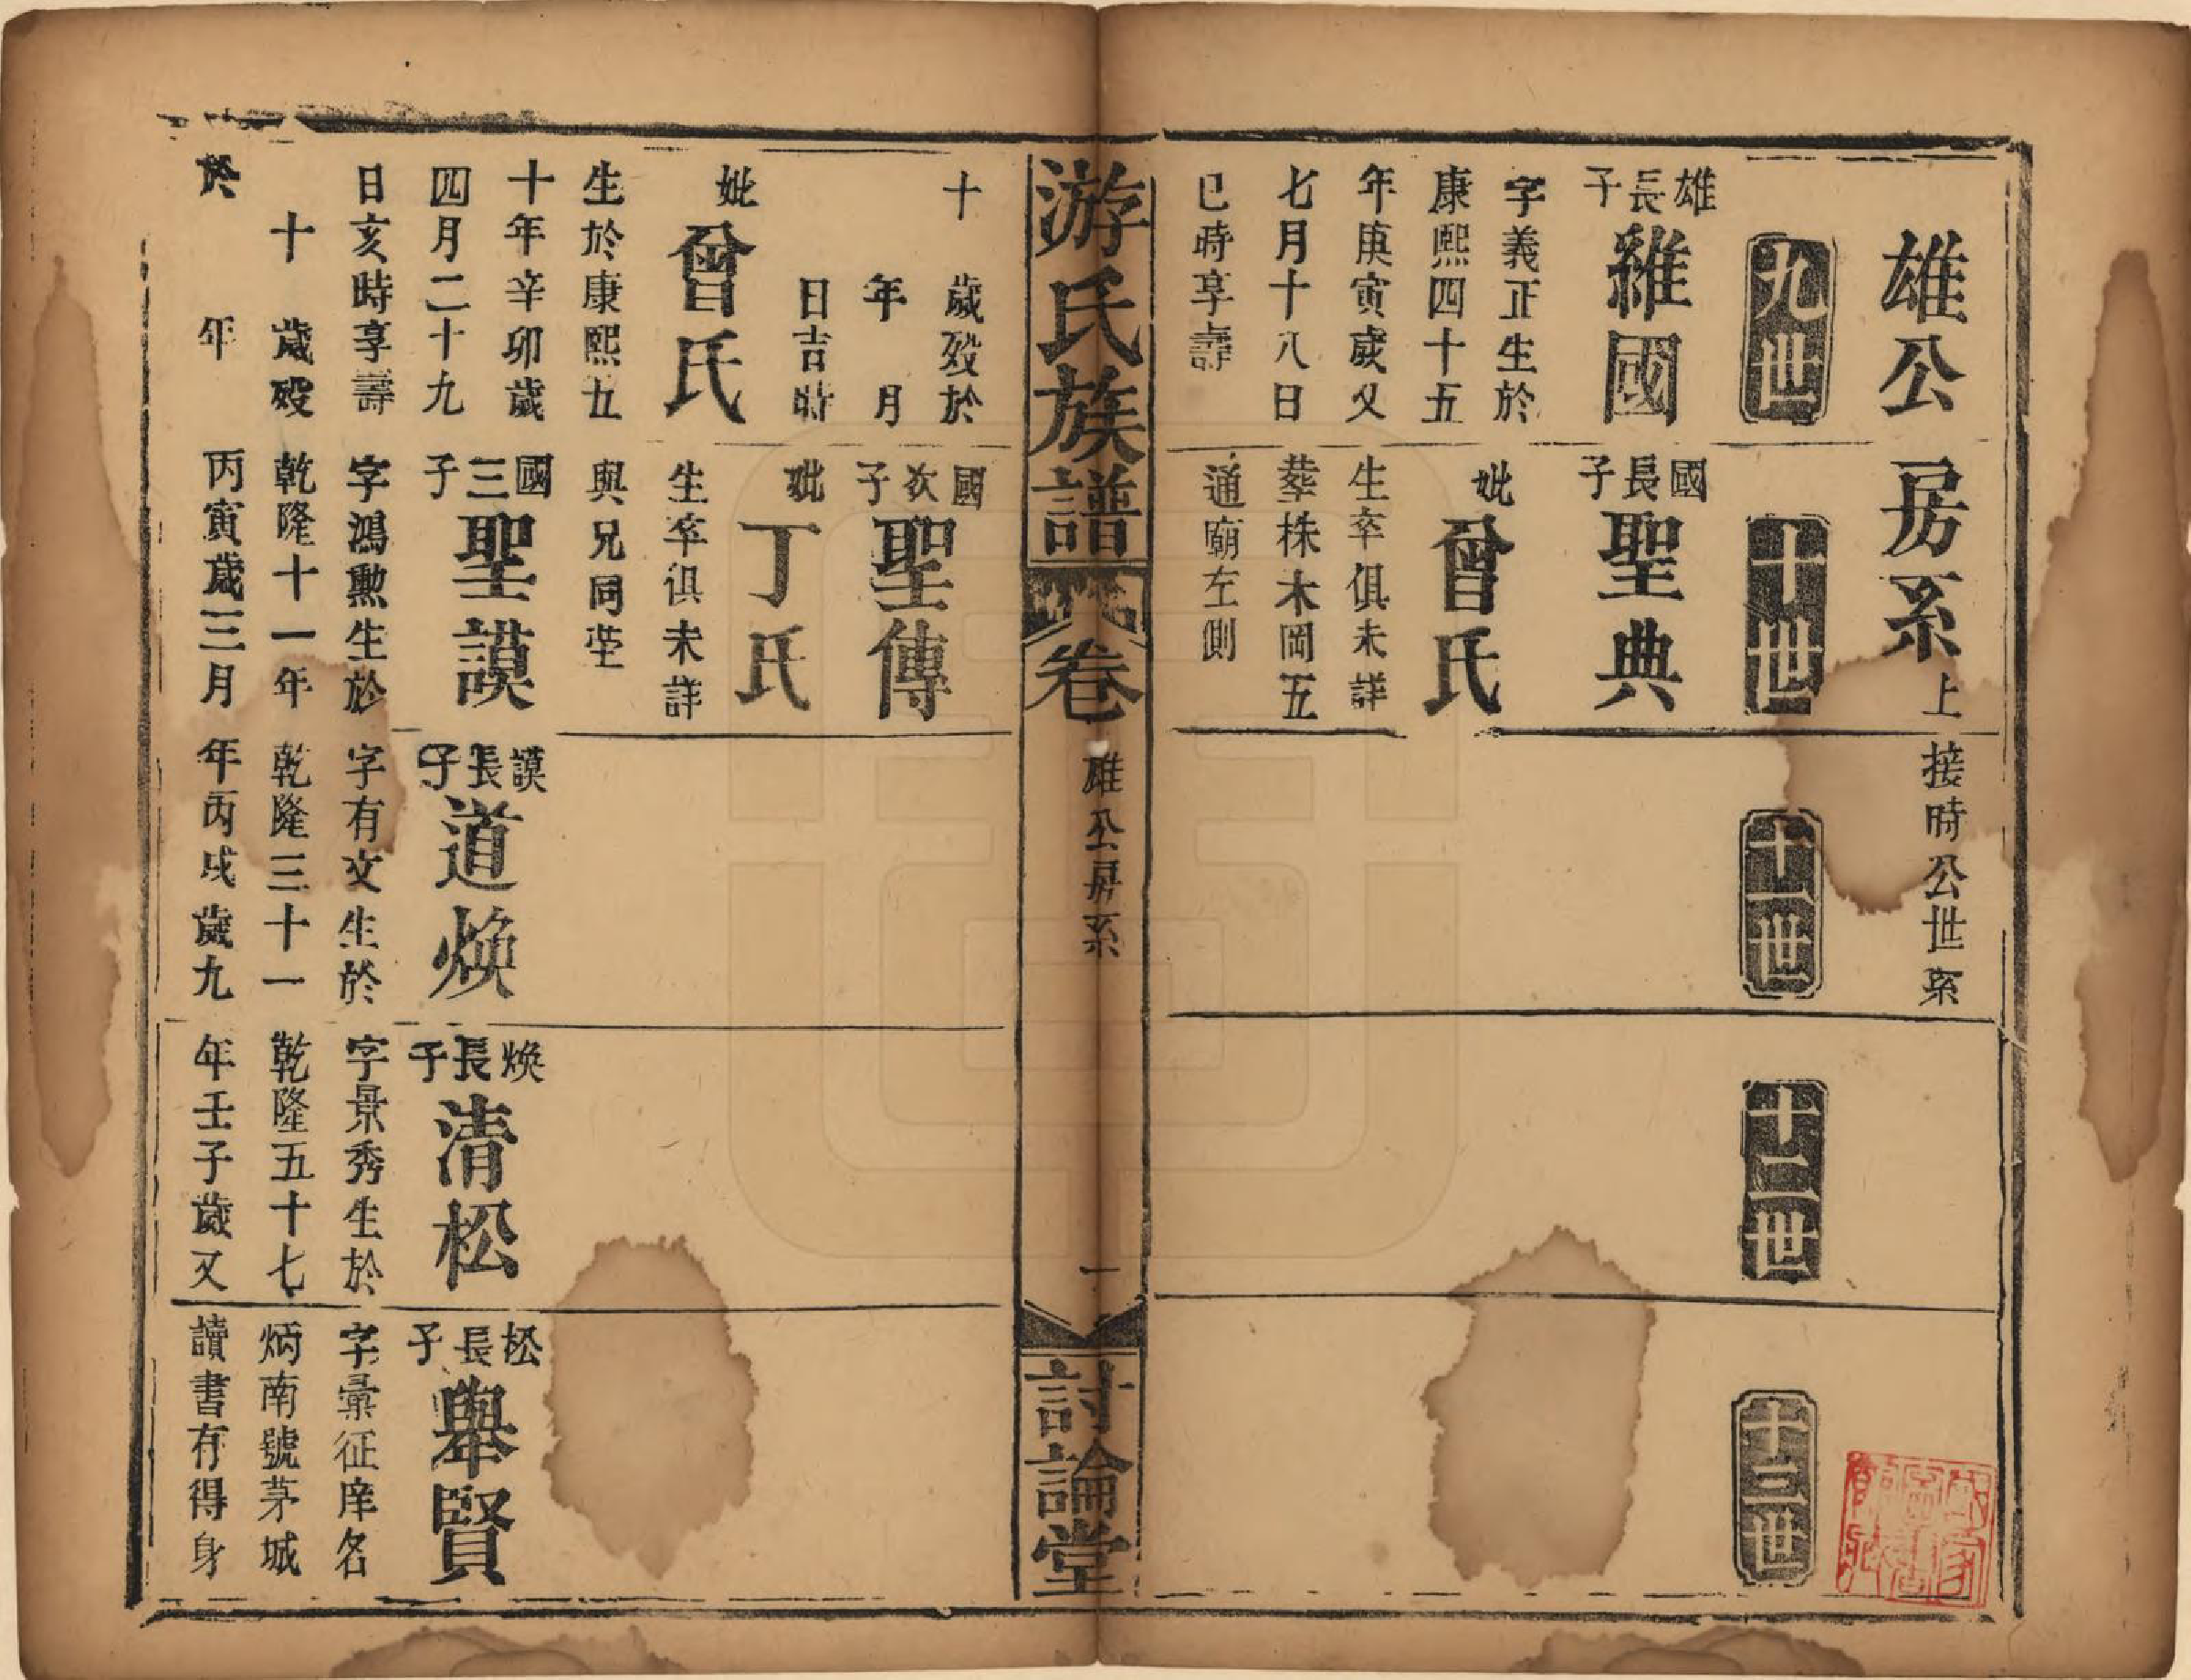 雄公房系上接時公世系
九世
十世
十一世
十二世
十三世
雄長子
維國
字義正生於
康熙四十五
年庚寅歲又
七月十八日
巳時享壽
十　歲歿於
年　月
日吉時
妣曾氏
生於康熙五
十年辛卯歲
四月二十九
日亥時享壽
十　歲歿
於　年
國長子
聖典
妣曾氏
生卒俱未詳
葬株木岡五
通廟左側
國次子
聖傳
妣丁氏
生卒俱未詳
與兄同塋
國三子
聖謨
字鴻勲生於
乾隆十一年
丙寅歲三月
謨長子
道煥
字有文生於
乾隆三十一
年丙戌歲九
煥長子
清松
字景秀生於
乾隆五十七
年壬子歲又
松長子
舉賢
字彙征庠名
炳南號茅城
讀書存得身
游氏族譜
卷
雄公房系
一
討論堂